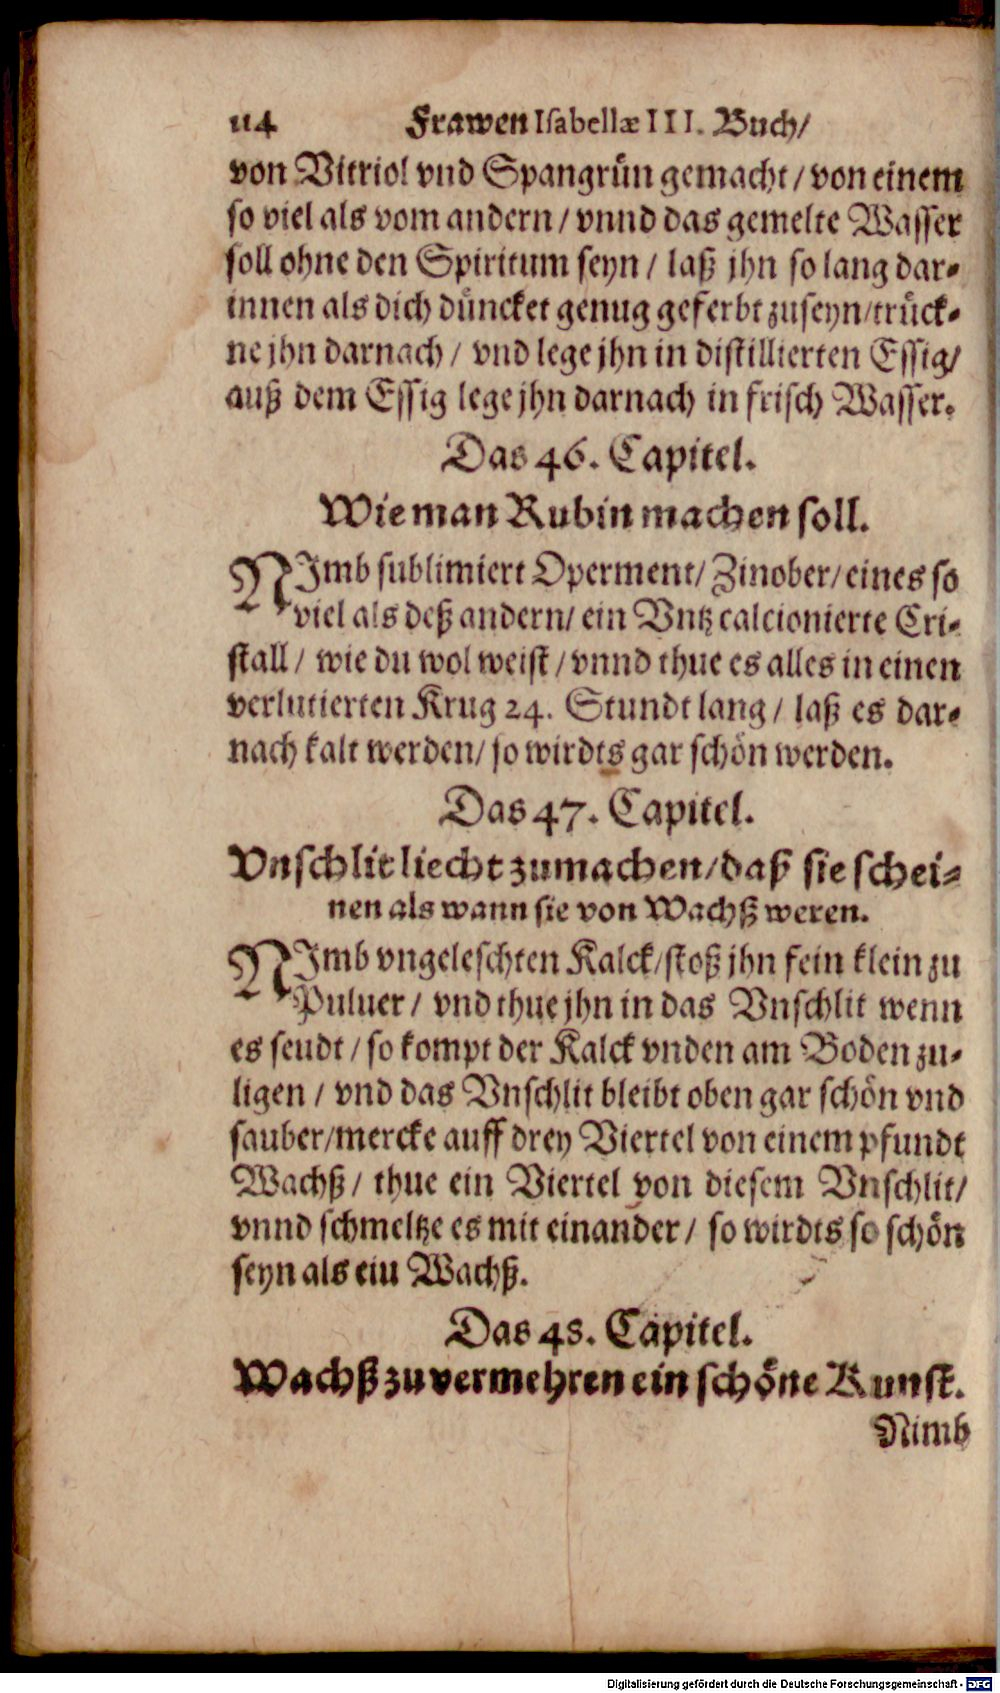 114 Frawen Isabellæ III. Buch/
von Vitriol vnd Spangrün gemacht / von einem
so viel als vom andern / vnnd das gemelte Wasser
soll ohne den Spiritum seyn / laß jhn so lang dar-
innen als dich düncket genug geferbt zuseyn/trück-
ne jhn darnach / vnd lege jhn in distillierten Essig/
auß dem Essig lege jhn darnach in frisch Wasser.
Das 46. Capitel.
Wie man Rubin machen soll.
NImb sublimiert Operment/ Zinober/ eines so
viel als deß andern/ ein Vntz calcionierte Cri-
stall / wie du wol weist / vnnd thue es alles in einen
verlutierten Krug 24. Stundt lang / laß es dar-
nach kalt werden/ so wirdts gar schön werden.
Das 47. Capitel.
Vnschlit liecht zumachen/daß sie schei-
nen als wann sie von Wachß weren.
NImb vngeleschten Kalck/stoß jhn fein klein zu
Puluer / vnd thue jhn in das Vnschlit wenn
es seudt / so kompt der Kalck vnden am Boden zu-
ligen / vnd das Vnschlit bleibt oben gar schön vnd
sauber/mercke auff drey Viertel von einem pfundt
Wachß / thue ein Viertel von diesem Vnschlit/
vnnd schmeltze es mit einander / so wirdts so schön
seyn als eiu Wachß.
Das 48. Capitel.
Wachß zu vermehren ein schöne Kunst.
Nimb
Digitalisierung gefördert durch die Deutsche Forschungsgemeinschaft - DFG